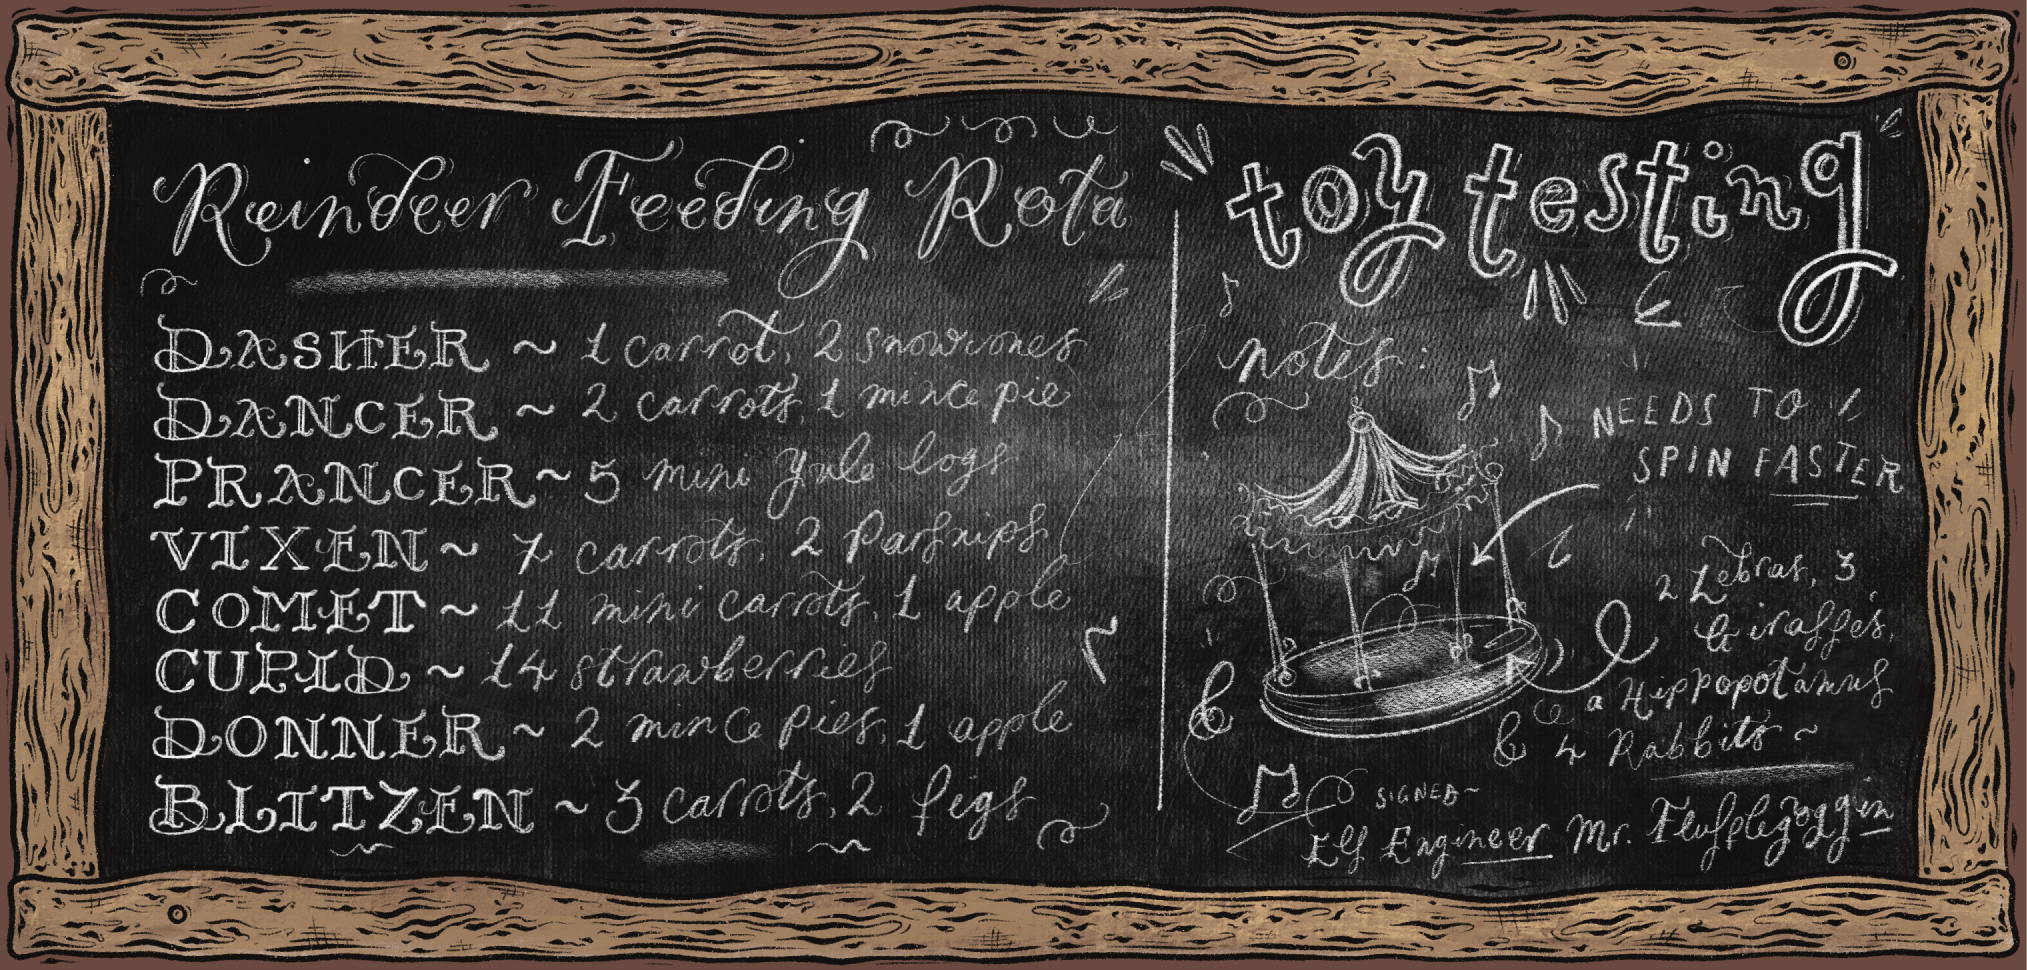 Reindeer Feeding Rota
DASHER ~ 1 carrot, 2 snowcones
DANCER ~ 2 carrots, 1 mince pie
PRANCER ~ 5 mini yule logs
VIXEN ~ 7 carrots, 2 Parsnips
COMET ~ 11 mini carrots, 1 apple
CUPID ~ 14 strawberries
DONNER ~ 2 mince pies, 1 apple
BLITZEN ~ 3 carrots, 2 figs
toy testing
notes:
NEEDS TO
SPIN FASTER
2 Zebras, 3
Giraffes,
a Hippopotamus
& 4 Rabbits ~
SIGNED~
Elf Engineer Mr.